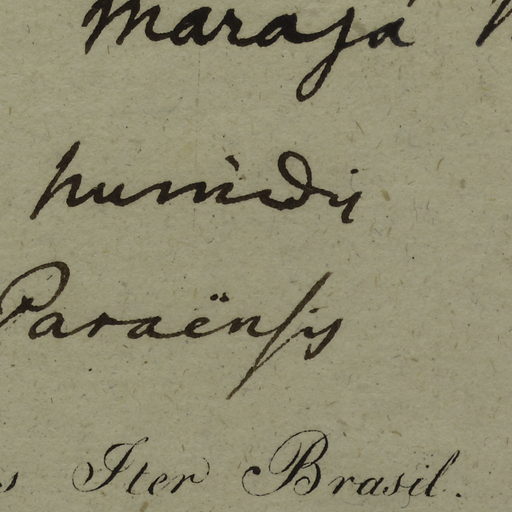 Marajá
humidis
Paraënsis
s Iter Brasil.